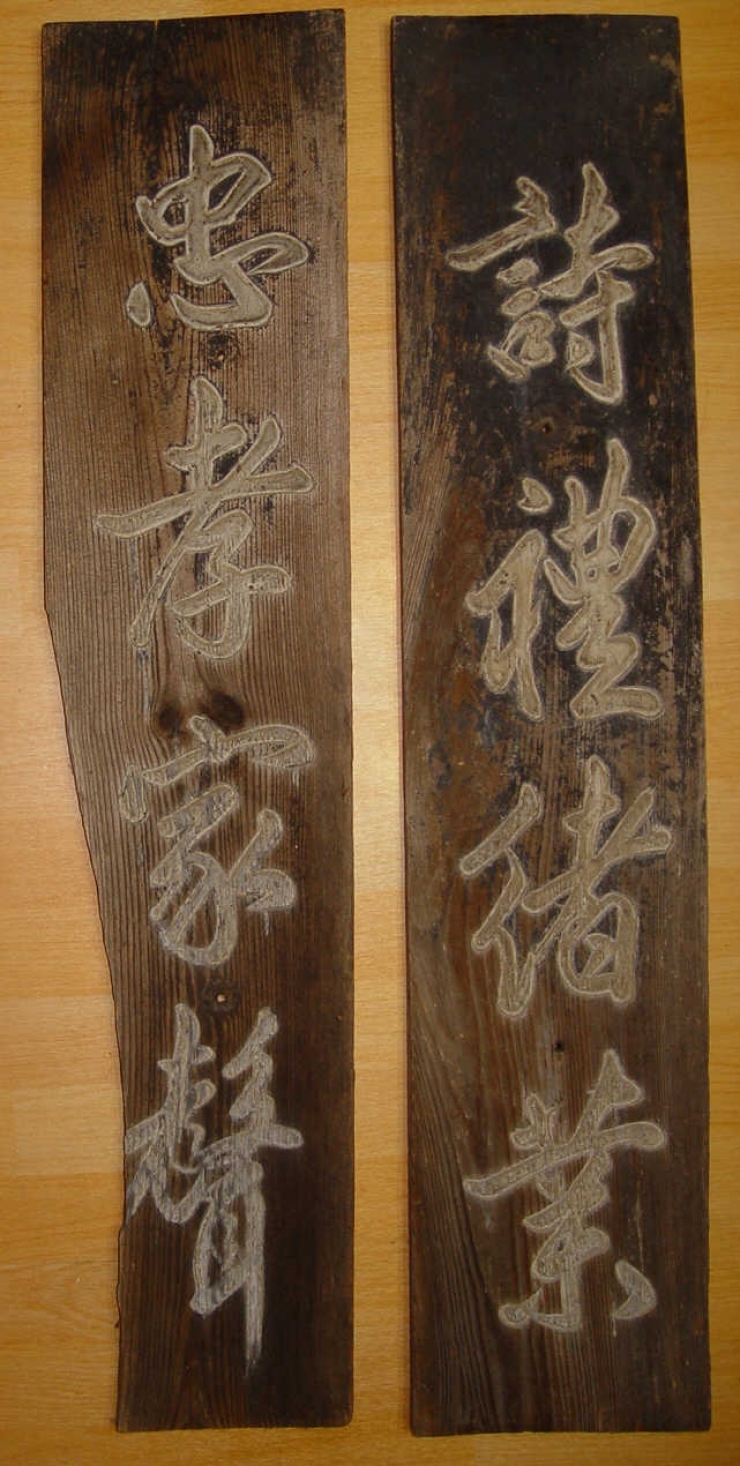 詩禮緒業
忠孝家聲